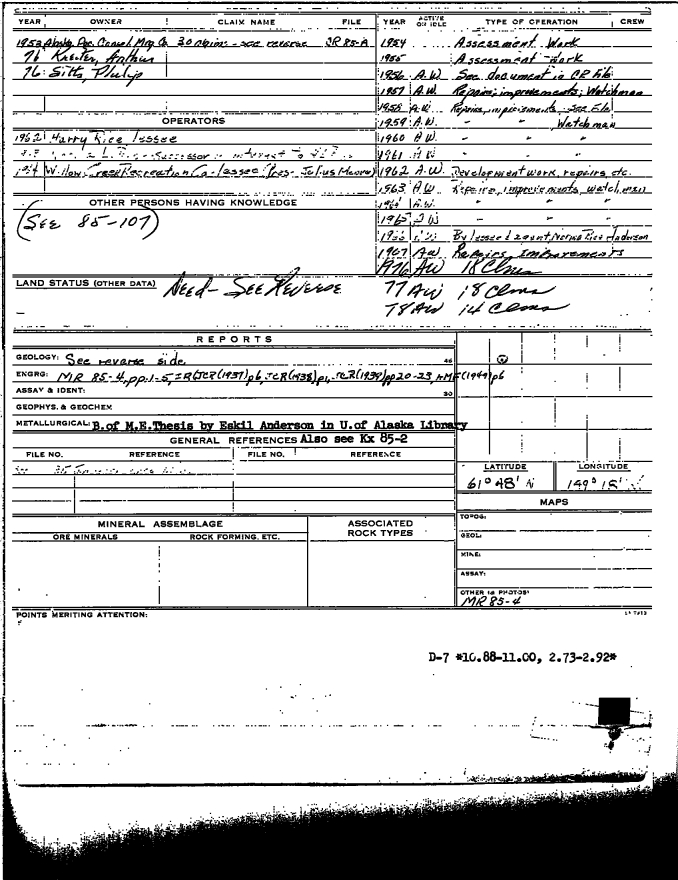 YEAR OWNER CLAIM NAME FILE YEAR ACTIVE OR IDLE TYPE OF OPERATION CREW
1953 Alaska Pac. Consol. Mng Co. 30 claims - see reverse 1954 Assessment Work
76 Arthur 1955 Assessment Work
76: Sitts, Philip 1956 A.W. See document in file
1957 A.W. Repairs; improvements; Watchman
1958 A.W. Repairs, improvements
OPERATORS 1959 A.W. " " Watchman
1962 Harry Rice lessee 1960 A.W. " "
Successor in interest to 1961 A.W. " "
Willow Creek Recreation Co. - lessee (Pres - Julius Moore) 1962 A.W. Development work, repairs, etc.
1963 A.W. Repairs, improvements, watchman
OTHER PERSONS HAVING KNOWLEDGE A.W. " "
(SEE 85-107) 1965 A.W. " "
By lessee & agent Norma Rice Anderson
1967 A.W. Repairs, Improvements
1976 AW 18 Clms
LAND STATUS (OTHER DATA) Need - See Reverse 77 AW 18 Clms
78 AW 14 Clms
REPORTS
GEOLOGY: See reverse side.
ENGRG: MR 85-4, pp. 1-5, JCR(1938)p1, JCR(1939)pp20-23, (1949)p6
ASSAY & IDENT: 30
GEOPHYS. & GEOCHEM
METALLURGICAL: B.of M.E.Thesis by Eskil Anderson in U.of Alaska Library
GENERAL REFERENCES Also see Kx 85-2
FILE NO. REFERENCE FILE NO. REFERENCE
LATITUDE LONGITUDE
61° 48' N 149°
MAPS
MINERAL ASSEMBLAGE ASSOCIATED ROCK TYPES TOPOG:
ORE MINERALS ROCK FORMING, ETC. GEOL:
MINE:
ASSAY:
OTHER PHOTOS:
MR 85-4
POINTS MERITING ATTENTION:
D-7 *10.88-11.00, 2.73-2.92*